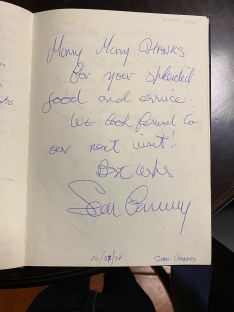 Many Many THANKS
for your splendid
food and service.
We look forward to
our next visit!
Best wishes
Sean Connery
06/07/12
Sean Connery